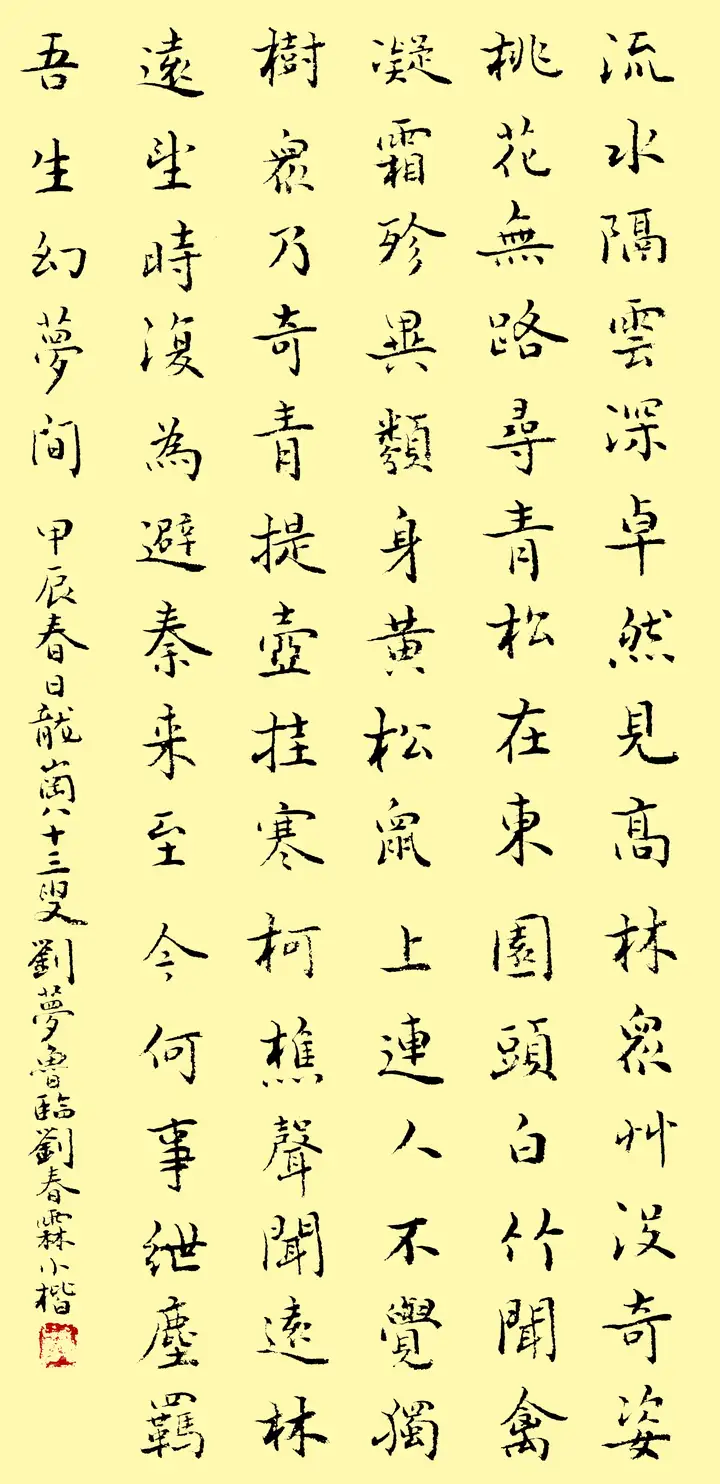 流水隔雲深卓然見高林眾艸沒奇姿
桃花無路尋青松在東園頭白竹聞禽
凝霜殄異類身黃松鼠上連人不覺獨
樹眾乃奇青提壺挂寒柯樵聲聞遠林
遠望時復為避秦来至今何事紲塵羈
吾生幻夢間
甲辰春日龍崗八十三叟劉夢魯臨劉春霖小楷